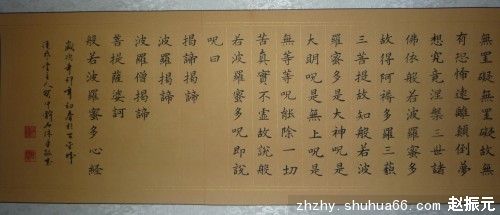 無罣礙無罣礙故無
有恐怖遠離顛倒夢
想究竟涅槃三世諸
佛依般若波羅蜜多
故得阿耨多羅三藐
三菩提故知般若波
羅蜜多是大神呪是
大明呪是無上呪是
無等等呪能除一切
苦真實不虛故說般
若波羅蜜多呪即說
呪曰
揭諦揭諦
波羅揭諦
波羅僧揭諦
菩提薩婆訶
般若波羅蜜多心經
歲次辛卯年初春於
zhzhy.shuhua66.com 赵振元